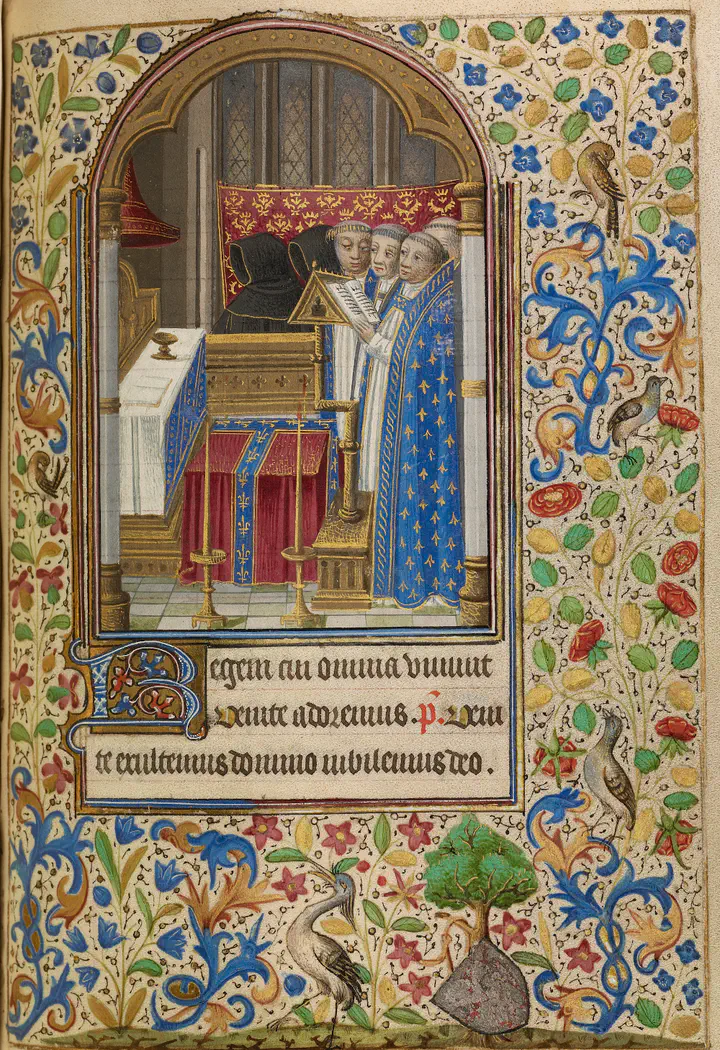 Regem cui omnia vivunt
venite adoremus. ps. Veni
te exultemus domino iubilemus deo.